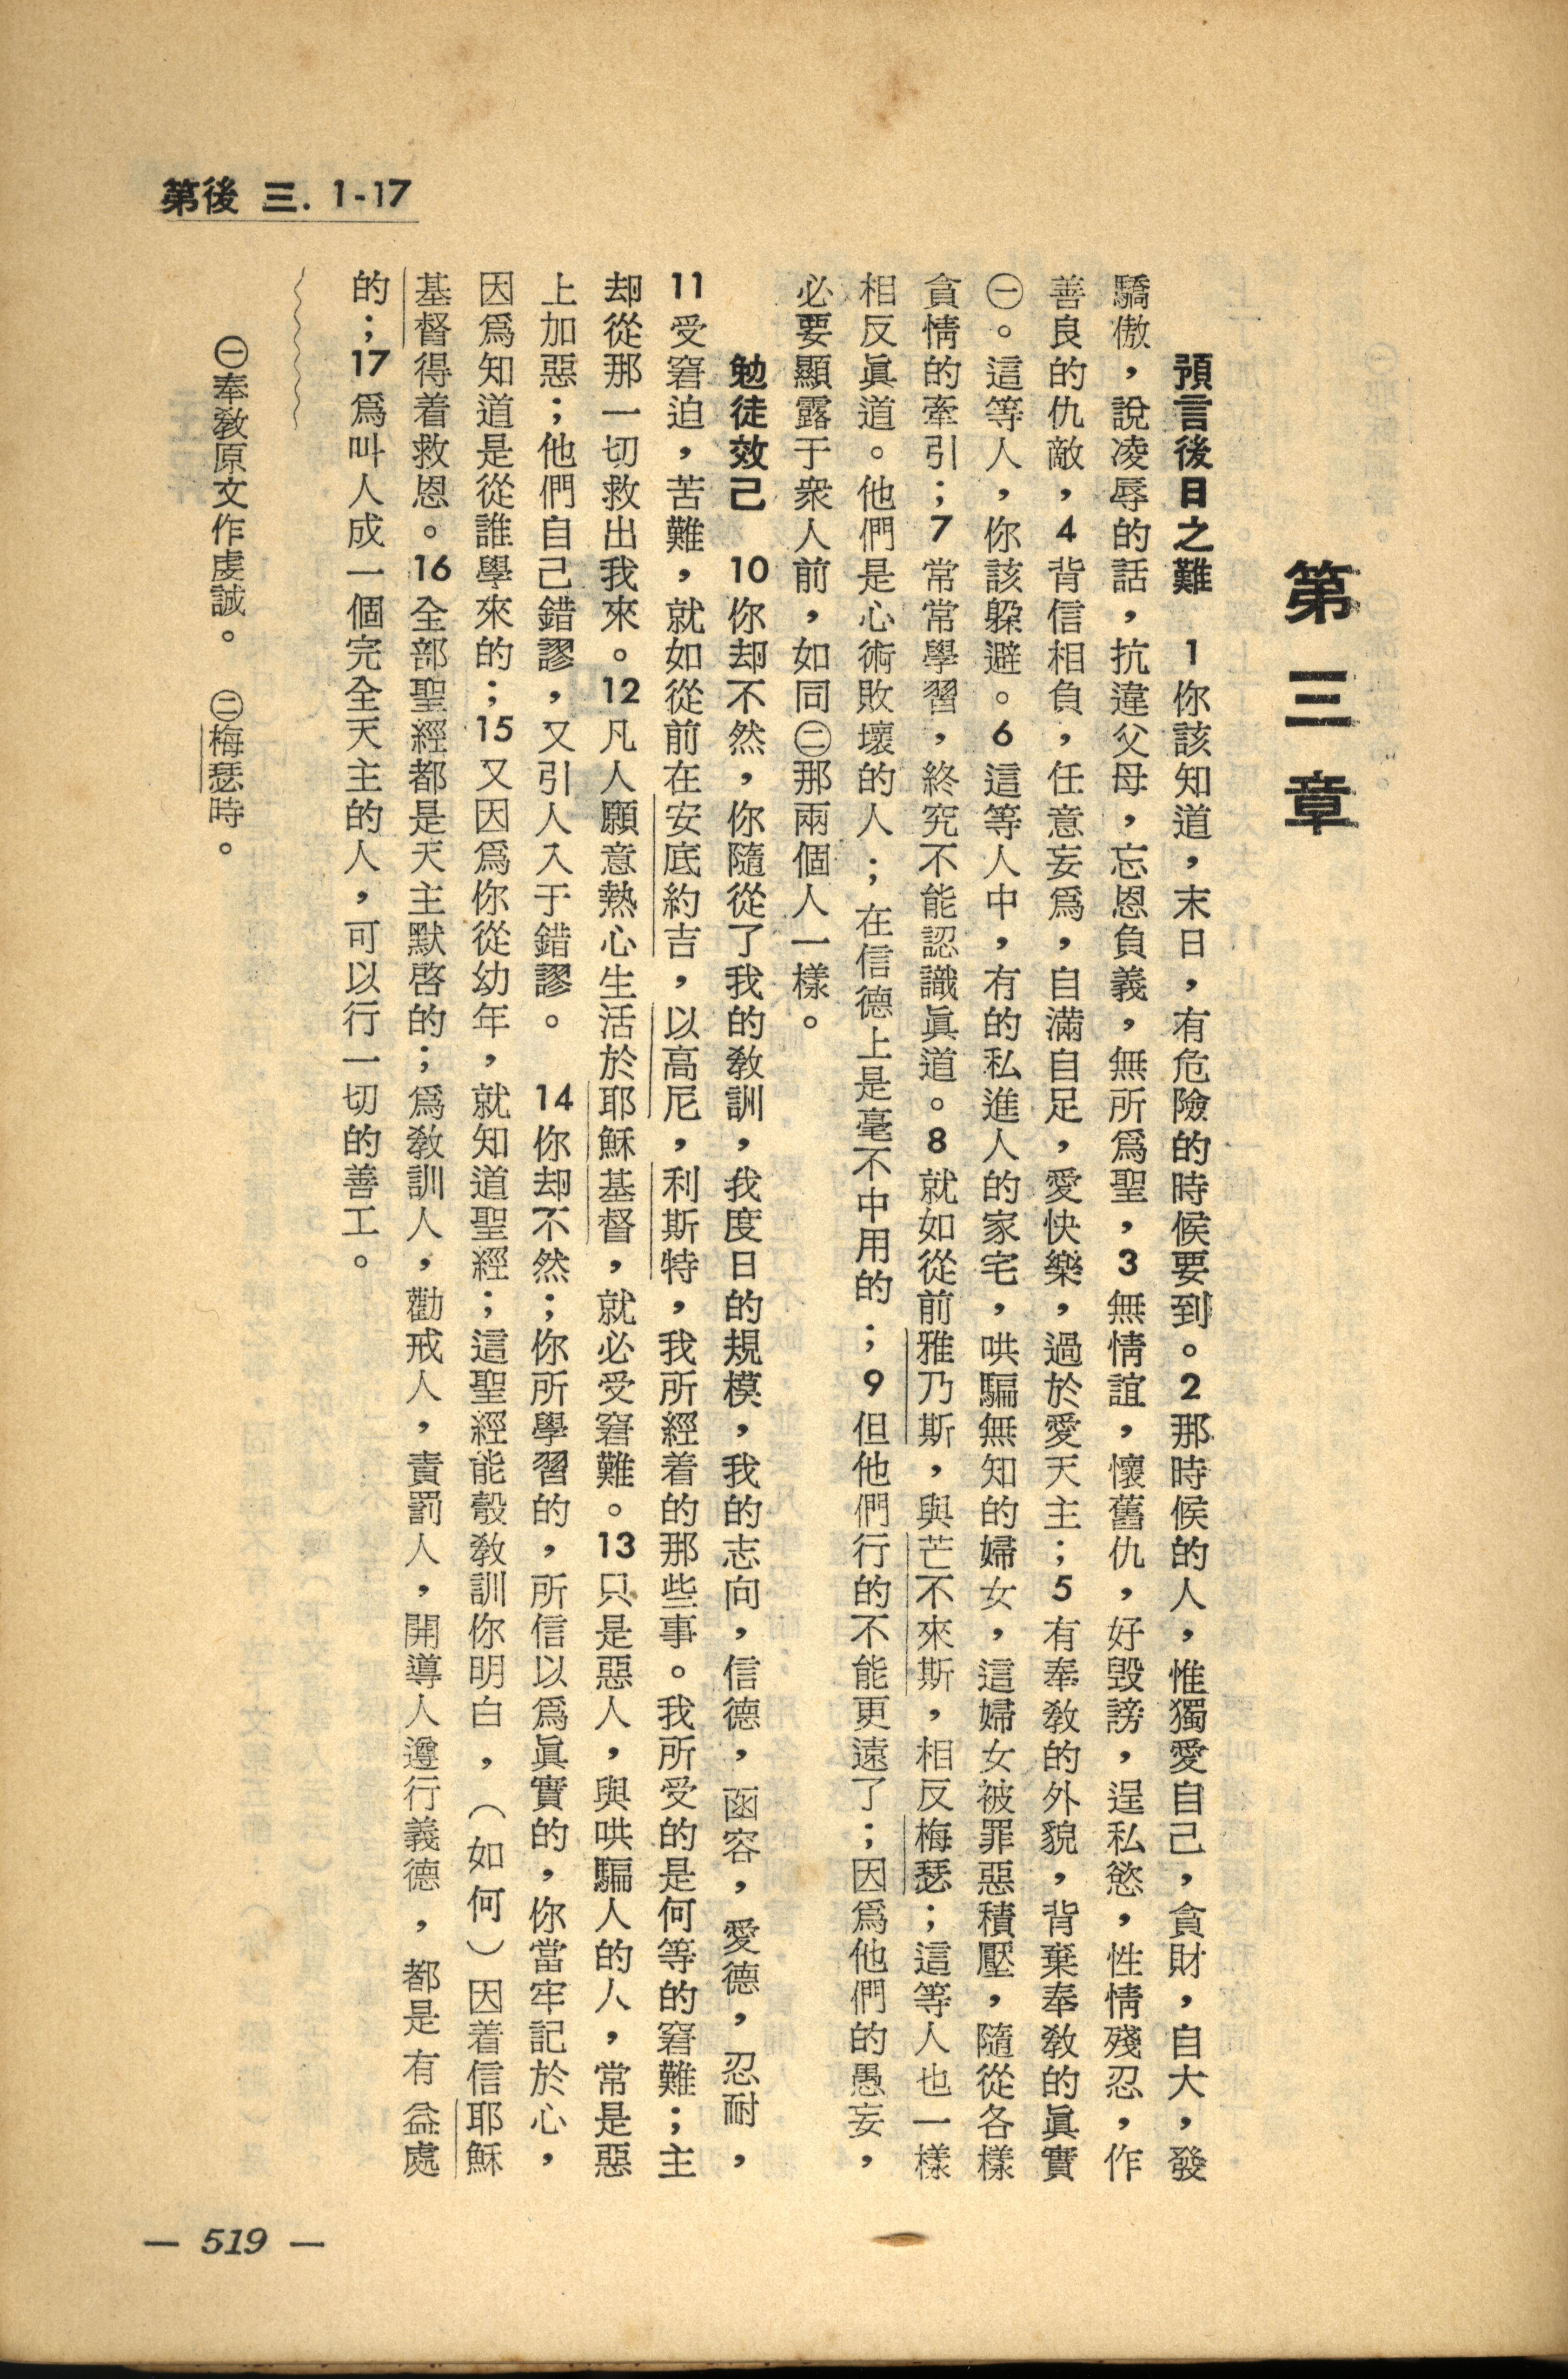 第後 三. 1-17
第三章
預言後日之難　1你該知道，末日，有危險的時候要到。2那時候的人，惟獨愛自己，貪財，自大，發
驕傲，說凌辱的話，抗違父母，忘恩負義，無所爲聖，3無情誼，懷舊仇，好毀謗，逞私慾，性情殘忍，作
善良的仇敵，4背信相負，任意妄爲，自滿自足，愛快樂，過於愛天主；5有奉敎的外貌，背棄奉敎的眞實
㊀。這等人，你該躱避。6這等人中，有的私進人的家宅，哄騙無知的婦女，這婦女被罪惡積壓，隨從各樣
貪情的牽引；7常常學習，終究不能認識眞道。8就如從前雅乃斯，與芒不來斯，相反梅瑟；這等人也一樣
相反眞道。他們是心術敗壞的人；在信德上是毫不中用的；9但他們行的不能更遠了；因爲他們的愚妄，
必要顯露于衆人前，如同㊁那兩個人一樣。
勉徒效己　10你却不然，你隨從了我的敎訓，我度日的規模，我的志向，信德，函容，愛德，忍耐，
11受窘迫，苦難，就如從前在安底約吉，以高尼，利斯特，我所經着的那些事。我所受的是何等的窘難；主
却從那一切救出我來。12凡人願意熱心生活於耶穌基督，就必受窘難。13只是惡人，與哄騙人的人，常是惡
上加惡；他們自己錯謬，又引人入于錯謬。　14你却不然；你所學習的，所信以爲眞實的，你當牢記於心，
因爲知道是從誰學來的；15又因爲你從幼年，就知道聖經；這聖經能彀敎訓你明白，（如何）因着信耶穌
基督得着救恩。16全部聖經都是天主默啓的；爲敎訓人，勸戒人，責罰人，開導人遵行義德，都是有益處
的；17爲叫人成一個完全天主的人，可以行一切的善工。
㊀奉敎原文作虔誠。　㊁梅瑟時。
— 519 —